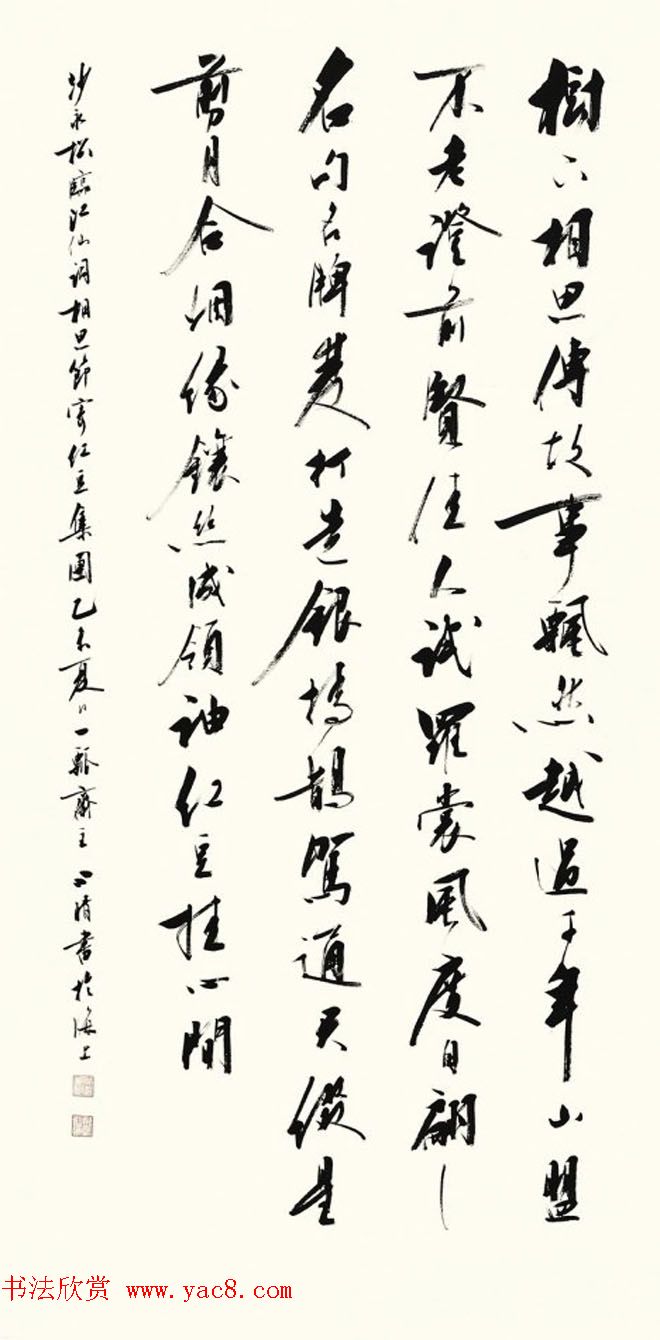 樹下相思傳故事飄然越過千年山盟
不老證前賢佳人試羅裳風度自翩〻
名句名牌雙打造銀橋鵲駕通天綴星
剪月合姻緣鑲絲成領袖紅豆挂心間
沙永松臨江仙詞相思節寄紅豆集團乙未夏日一瓢齋主清書於海上
书法欣赏 www.yac8.com